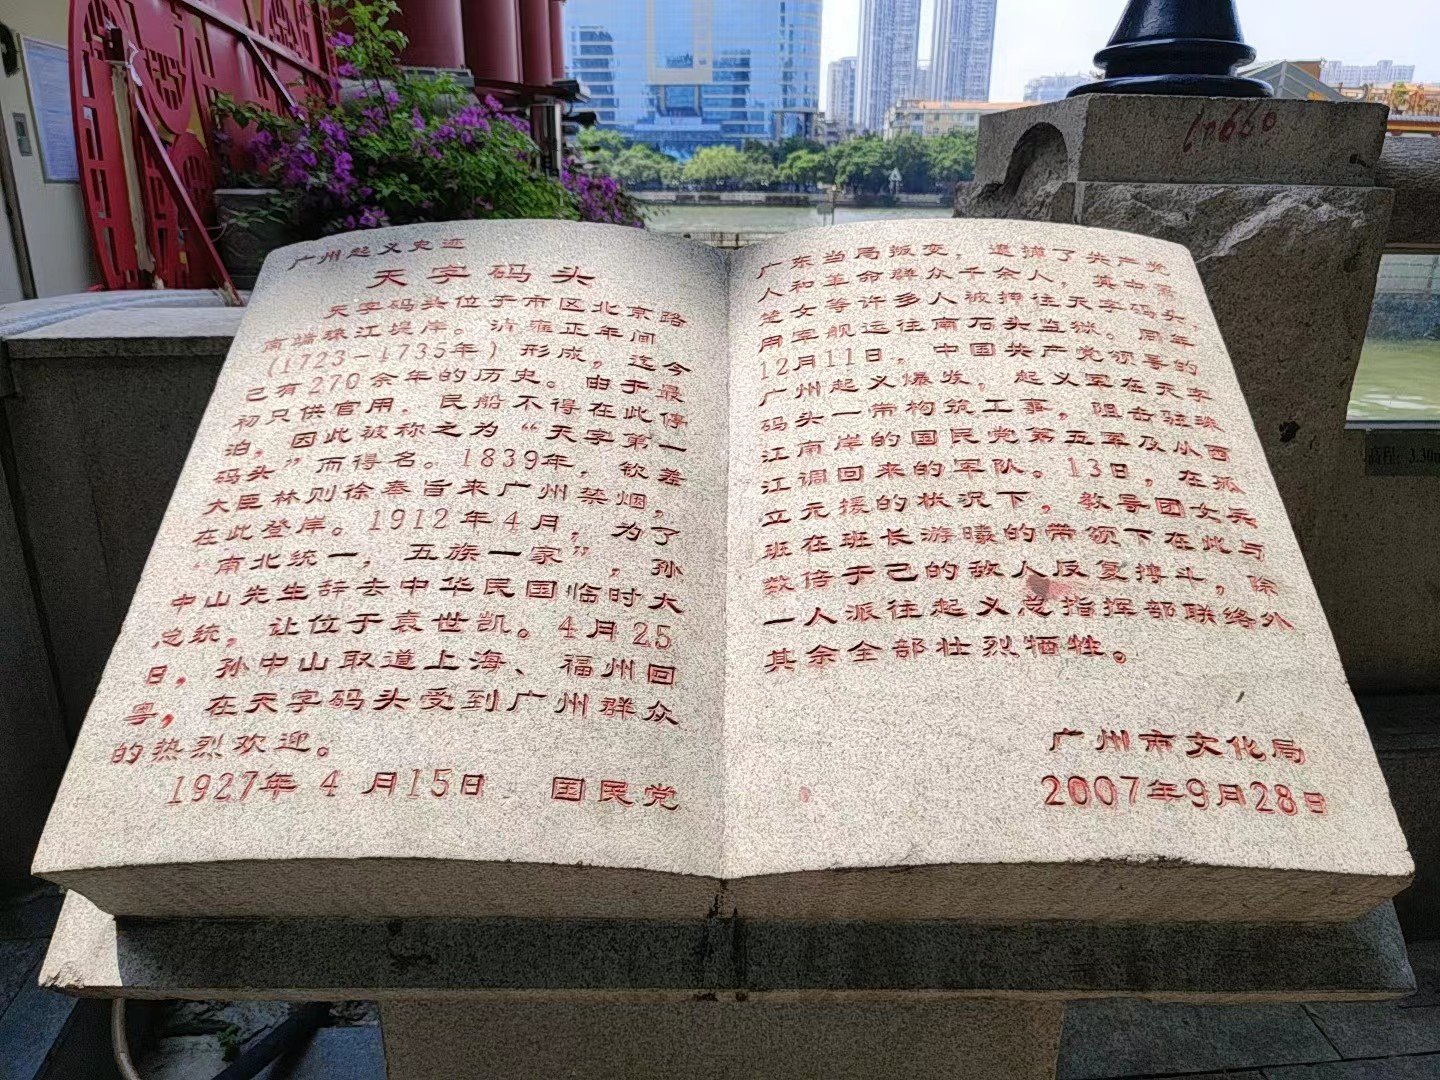 广州起义史迹
天字码头
天字码头位于市区北京路
南端珠江堤岸。清雍正年间
(1723-1735年）形成，迄今
已有270余年的历史。由于最
初只供官用，民船不得在此停
泊，因此被称之为“天字第一
码头”而得名。1839年，钦差
大臣林则徐奉旨来广州禁烟，
在此登岸。1912年4月，为了
“南北统一，五族一家”，孙
中山先生辞去中华民国临时大
总统，让位于袁世凯。4月25
日，孙中山取道上海、福州回
粤，在天字码头受到广州群众
的热烈欢迎。
1927年4月15日 国民党
广东当局叛变，逮捕了共产党
人和革命群众千余人，其中
楚女等许多人被押往天字码头，
用军舰运往南石头监狱。同年
12月11日，中国共产党领导的
广州起义爆发，起义军在天字
码头一带构筑工事，阻击驻珠
江南岸的国民党第五军及从西
江调回来的军队。13日，在孤
立无援的状况下，教导团女兵
班在班长游曦的带领下在此与
数倍于己的敌人反复搏斗，除
一人派往起义总指挥部联络外
其余全部壮烈牺牲。
广州市文化局
2007年9月28日
3.30m